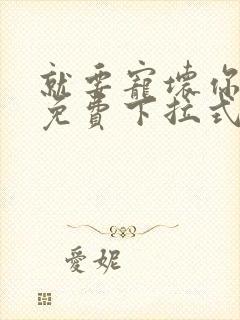 就要寵壞你
免費下拉式
愛妮